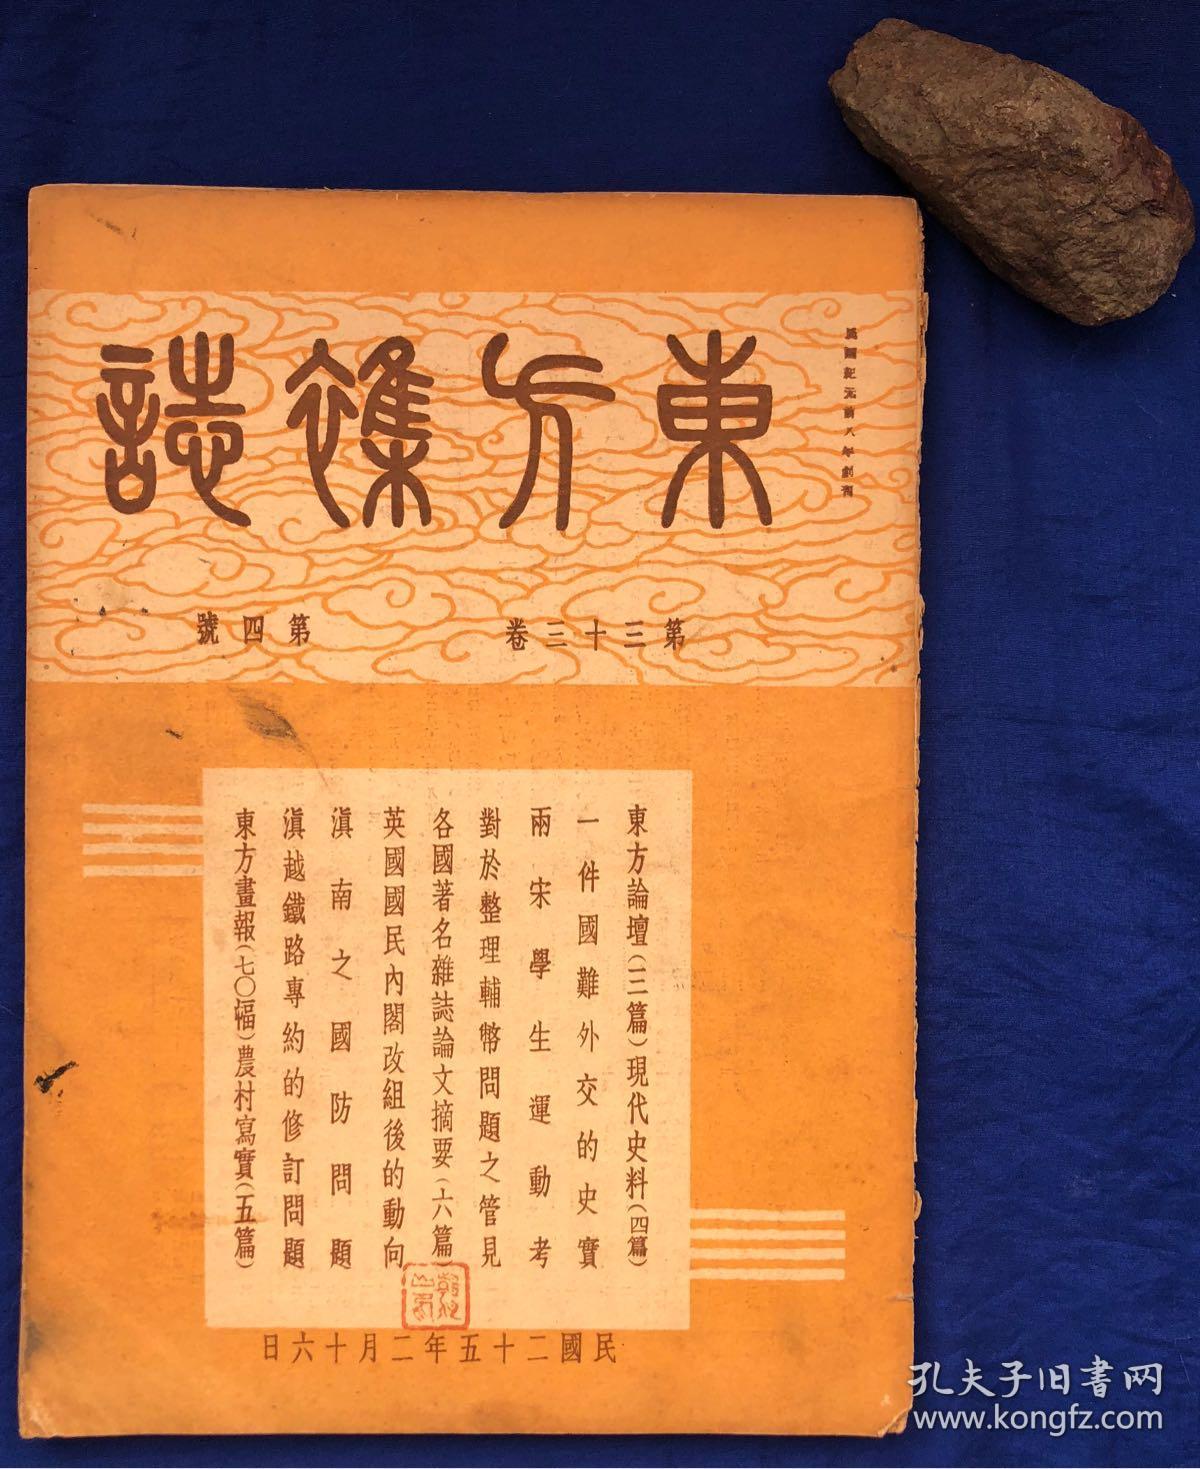 民國紀元前八年創刊
東方雜誌
第三十三卷 第四號
東方論壇(三篇)現代史料(四篇)
一件國難外交的史實
兩宋學生運動考
對於整理輔幣問題之管見
各國著名雜誌論文摘要(六篇)
英國國民內閣改組後的動向
滇南之國防問題
滇越鐵路專約的修訂問題
東方畫報(七〇幅)農村寫實(五篇)
民國二十五年二月十六日
孔夫子旧書网
www.kongfz.com